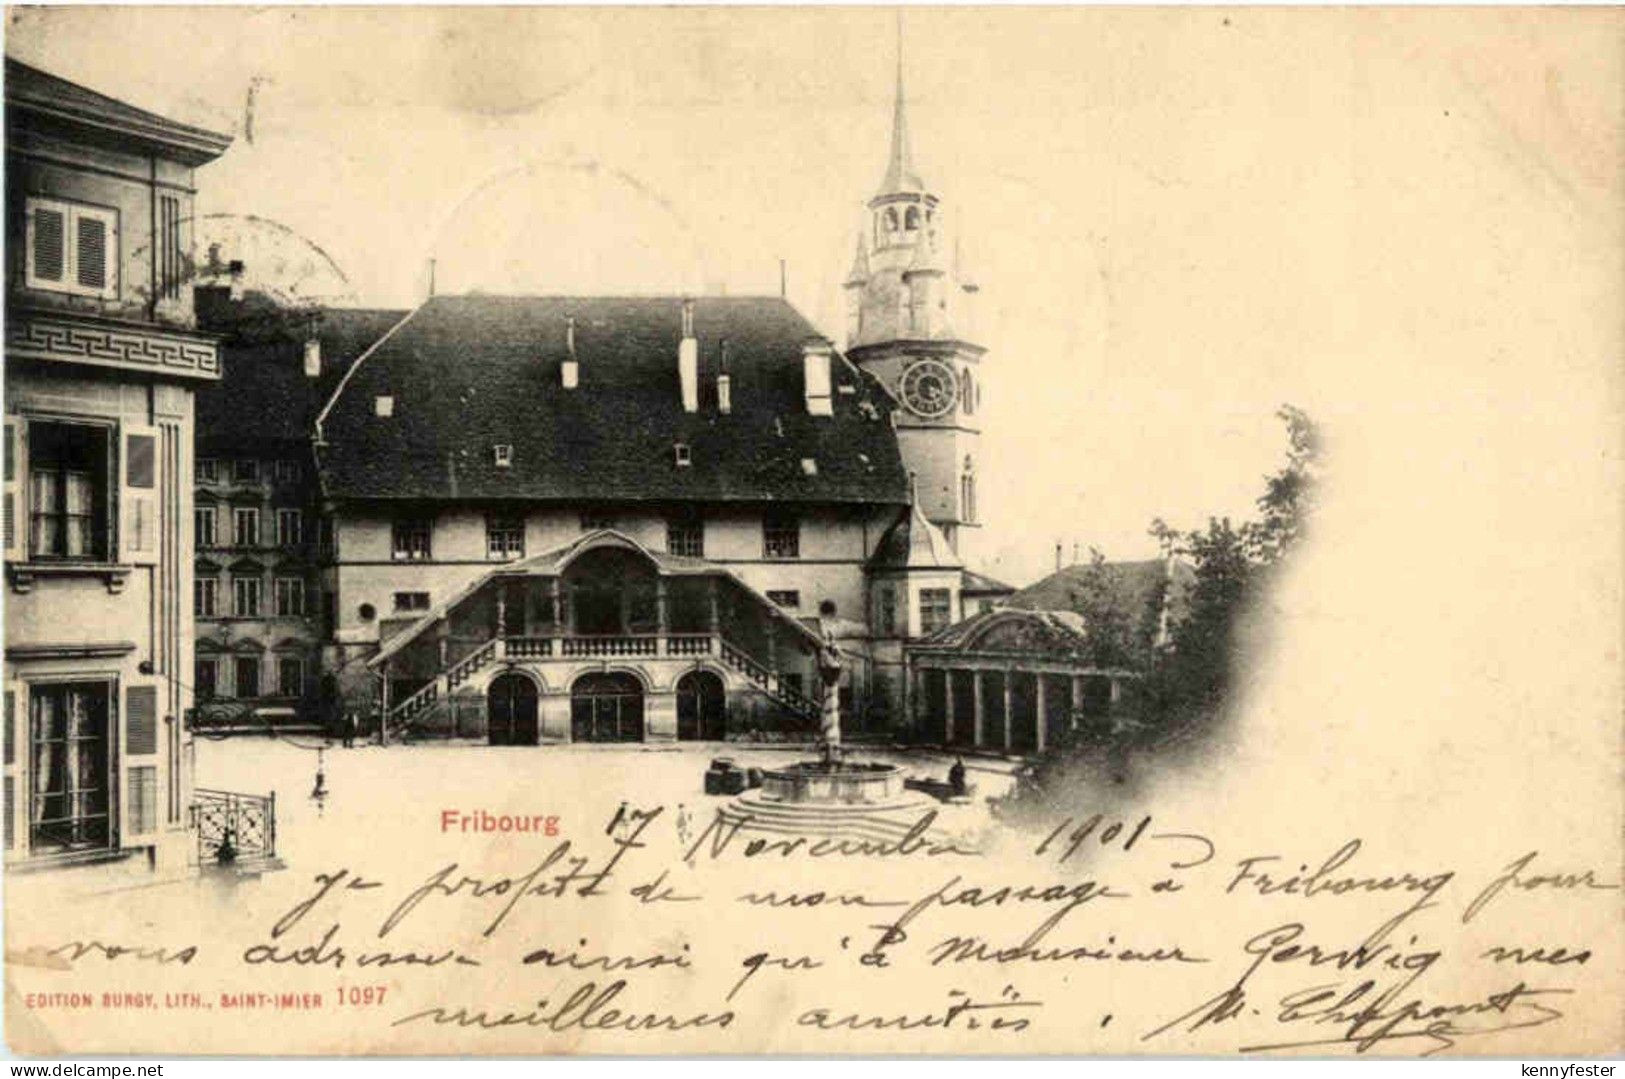 Fribourg
17 Novembre 1901
je profite de mon passage à Fribourg pour
vous adresser ainsi qu'à Monsieur Gerwig mes
meilleures amitiés.
EDITION BURGY, LITH., SAINT-IMIER 1097
delcampe.net
kennyfester